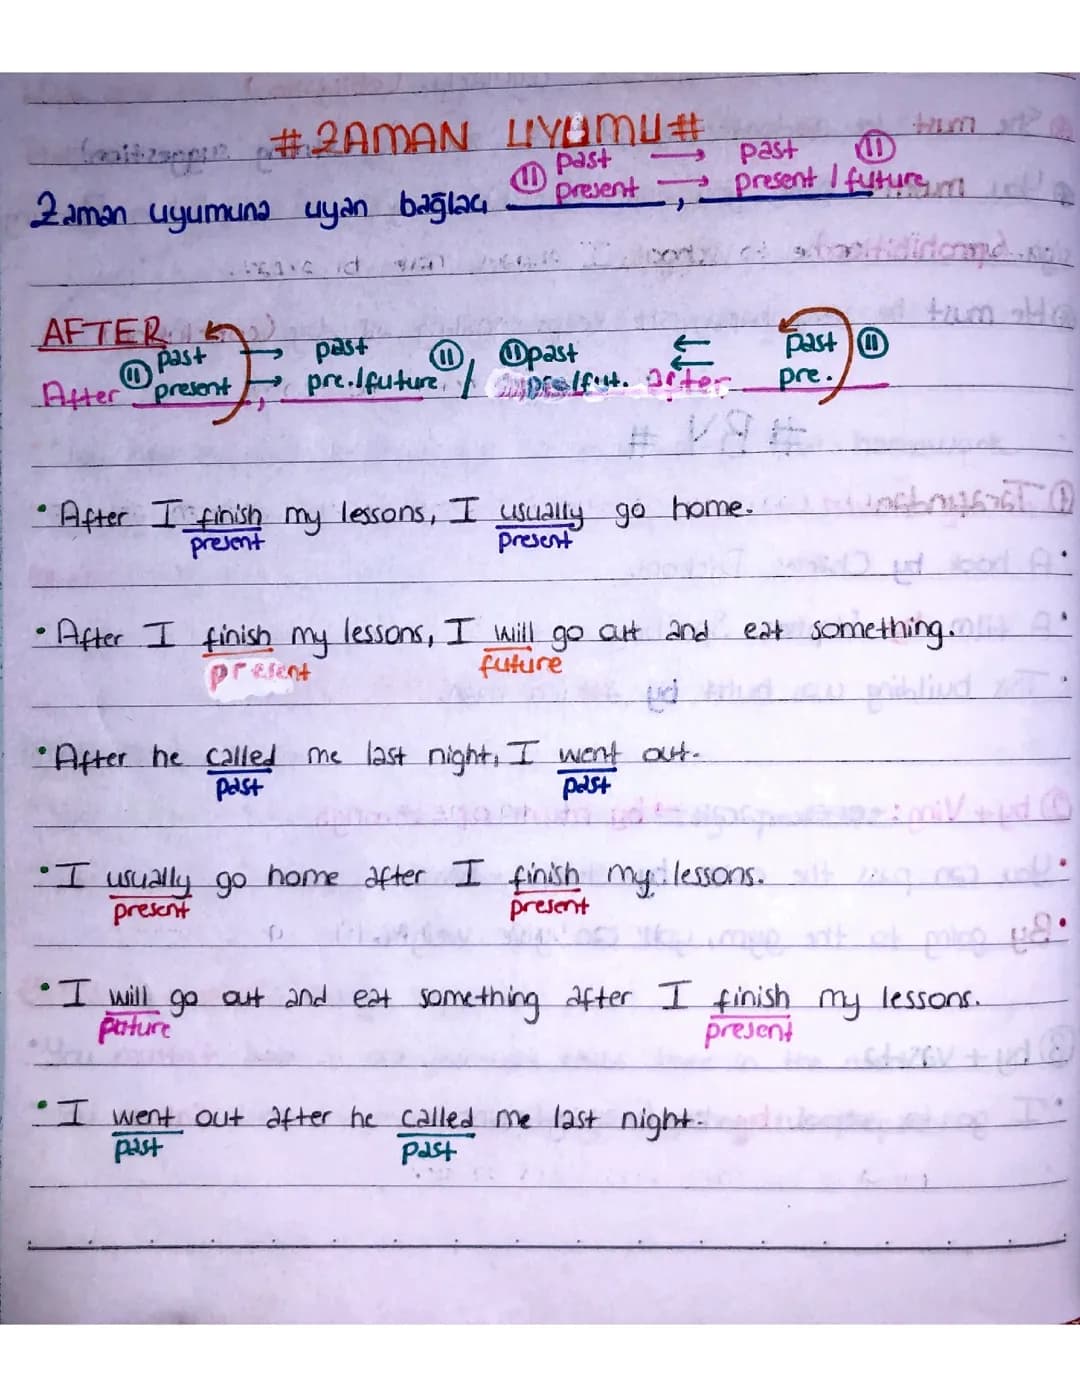 #ZAMAN UYUMU#
⑪ past → past ⑪
present → present / future
Zaman uyumuna uyan bağlacı ______, ______
AFTER
⑪ past → past ⑪, ⑪ past ⇇ past ⑪
After present, → pre./future / pre/fut. after pre.
• After I finish my lessons, I usually go home.
present present
• After I finish my lessons, I will go out and eat something.
present future
• After he called me last night, I went out.
past past
• I usually go home after I finish my lessons.
present present
• I will go out and eat something after I finish my lessons.
puture present
• I went out after he called me last night.
past past